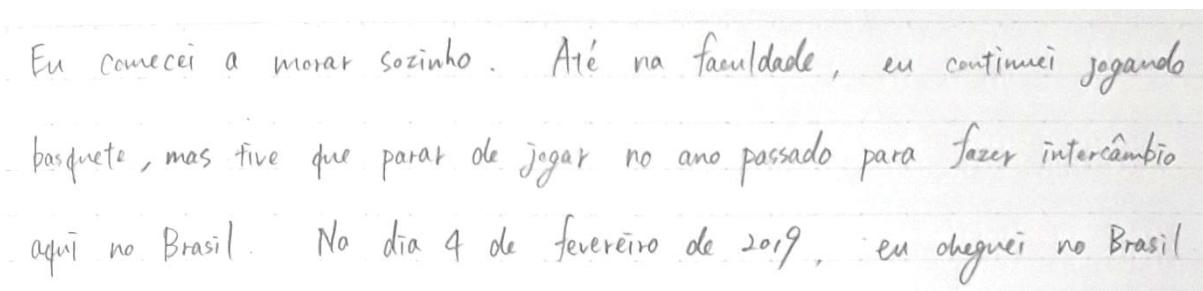 Eu comecei a morar sozinho. Até na faculdade, eu continuei jogando
basquete, mas tive que parar de jogar no ano passado para fazer intercâmbio
aqui no Brasil. No dia 4 de fevereiro de 2019, eu cheguei no Brasil